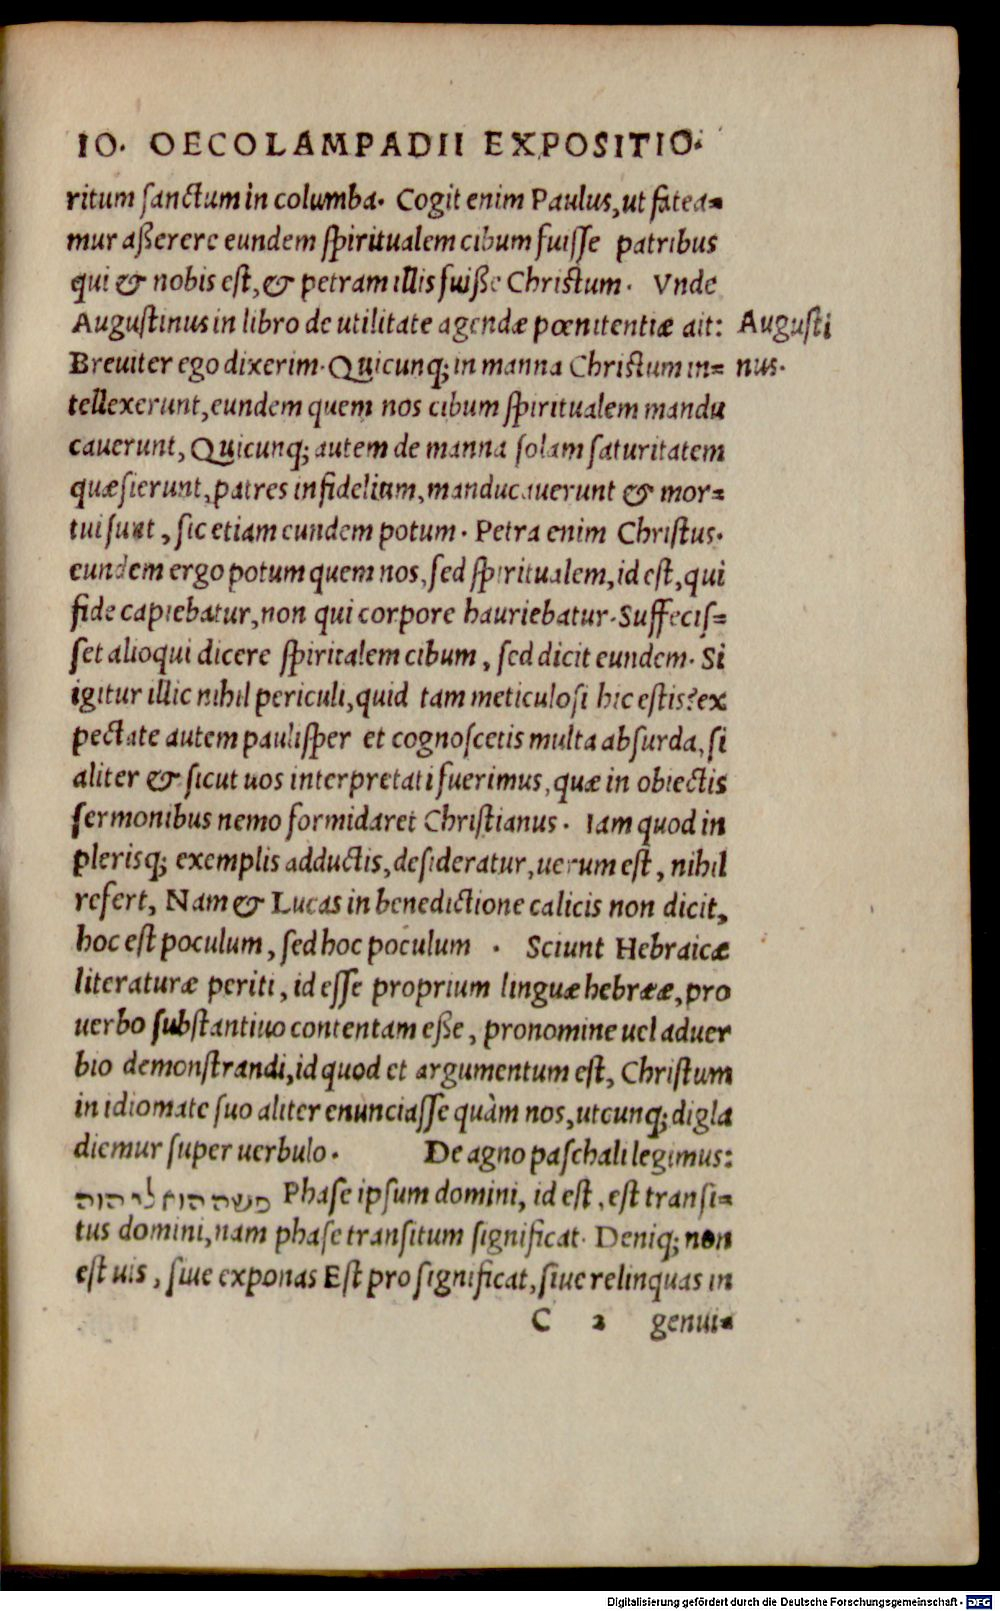 IO. OECOLAMPADII EXPOSITIO.
ritum sanctum in columba. Cogit enim Paulus, ut fatea=
mur aßerere eundem spiritualem cibum fuisse patribus
qui & nobis est, & petram illis fuiße Christum. Vnde
Augustinus in libro de utilitate agendæ pœnitentiæ ait:
Augusti
nus.
Breuiter ego dixerim. Quicunq; in manna Christum in=
tellexerunt, eundem quem nos cibum spiritualem mandu
cauerunt, Quicunq; autem de manna solam saturitatem
quæsierunt, patres infidelium, manducauerunt & mor=
tui sunt, sic etiam eundem potum. Petra enim Christus.
eundem ergo potum quem nos, sed spiritualem, id est, qui
fide capiebatur, non qui corpore hauriebatur. Suffecis=
set alioqui dicere spiritalem cibum, sed dicit eundem. Si
igitur illic nihil periculi, quid tam meticulosi hic estis? ex
pectate autem paulisper et cognoscetis multa absurda, si
aliter & sicut uos interpretati fuerimus, quæ in obiectis
sermonibus nemo formidaret Christianus. Iam quod in
plerisq; exemplis adductis, desideratur, uerum est, nihil
refert, Nam & Lucas in benedictione calicis non dicit,
hoc est poculum, sed hoc poculum. Sciunt Hebraicæ
literaturæ periti, id esse proprium linguæ hebrææ, pro
uerbo substantiuo contentam eße, pronomine uel aduer
bio demonstrandi, id quod et argumentum est, Christum
in idiomate suo aliter enunciasse quàm nos, utcunq; digla
diemur super uerbulo. De agno paschali legimus:
פשה הוא ליהוה Phase ipsum domini, id est, est transi=
tus domini, nam phase transitum significat. Deniq; non
est uis, siue exponas Est pro significat, siue relinquas in
C 2 genui=
Digitalisierung gefördert durch die Deutsche Forschungsgemeinschaft - DFG